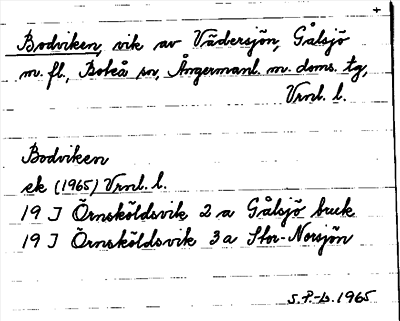 Bodviken, vik av Vädersjön, Gålsjö
m. fl., Boteå sn, Ångermanl. m. doms. tg,
Vrnl. l.
Bodviken
ek (1965) Vrnl. l.
19 J Örnsköldsvik 2 a Gålsjö bruk
19 J Örnsköldsvik 3 a Stor-Norsjön
S.P.-L. 1965